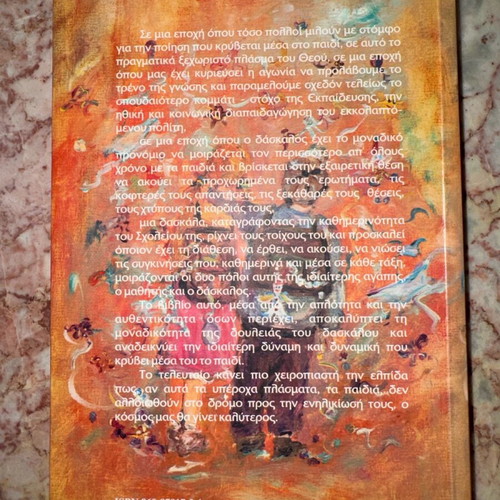 Σε μια εποχή όπου τόσο πολλοί μιλούν με στόμφο
για την ποίηση που κρύβεται μέσα στο παιδί, σε αυτό το
πραγματικά ξεχωριστό πλάσμα του Θεού, σε μια εποχή
όπου μας έχει κυριεύσει η αγωνία να προλάβουμε το
τρένο της γνώσης και παραμελούμε σχεδόν τελείως το
σπουδαιότερο κομμάτι - στόχο της Εκπαίδευσης, την
ηθική και κοινωνική διαπαιδαγώγηση του εκκολαπτό-
μενου πολίτη,
σε μια εποχή όπου ο δάσκαλος έχει το μοναδικό
προνόμιο να μοιράζεται τον περισσότερο απ' όλους
χρόνο με τα παιδιά και βρίσκεται στην εξαιρετική θέση
να ακούει τα προχωρημένα τους ερωτήματα, τις
κοφτερές τους απαντήσεις, τις ξεκάθαρές τους θέσεις,
τους χτύπους της καρδιάς τους,
μια δασκάλα, καταγράφοντας την καθημερινότητα
του Σχολείου της, ρίχνει τους τοίχους του και προσκαλεί
όποιον έχει τη διάθεση, να έρθει, να ακούσει, να νιώσει
τις συγκινήσεις που, καθημερινά και μέσα σε κάθε τάξη,
μοιράζονται οι δυο πόλοι αυτής της ιδιαίτερης αγάπης,
ο μαθητής και ο δάσκαλος.
Το βιβλίο αυτό, μέσα από την απλότητα και την
αυθεντικότητα όσων περιέχει, αποκαλύπτει τη
μοναδικότητα της δουλειάς του δασκάλου και
αναδεικνύει την ιδιαίτερη δύναμη και δυναμική που
κρύβει μέσα του το παιδί.
Το τελευταίο κάνει πιο χειροπιαστή την ελπίδα
πως αν αυτά τα υπέροχα πλάσματα, τα παιδιά, δεν
αλλοιωθούν στο δρόμο προς την ενηλικίωσή τους, ο
κόσμος μας θα γίνει καλύτερος.